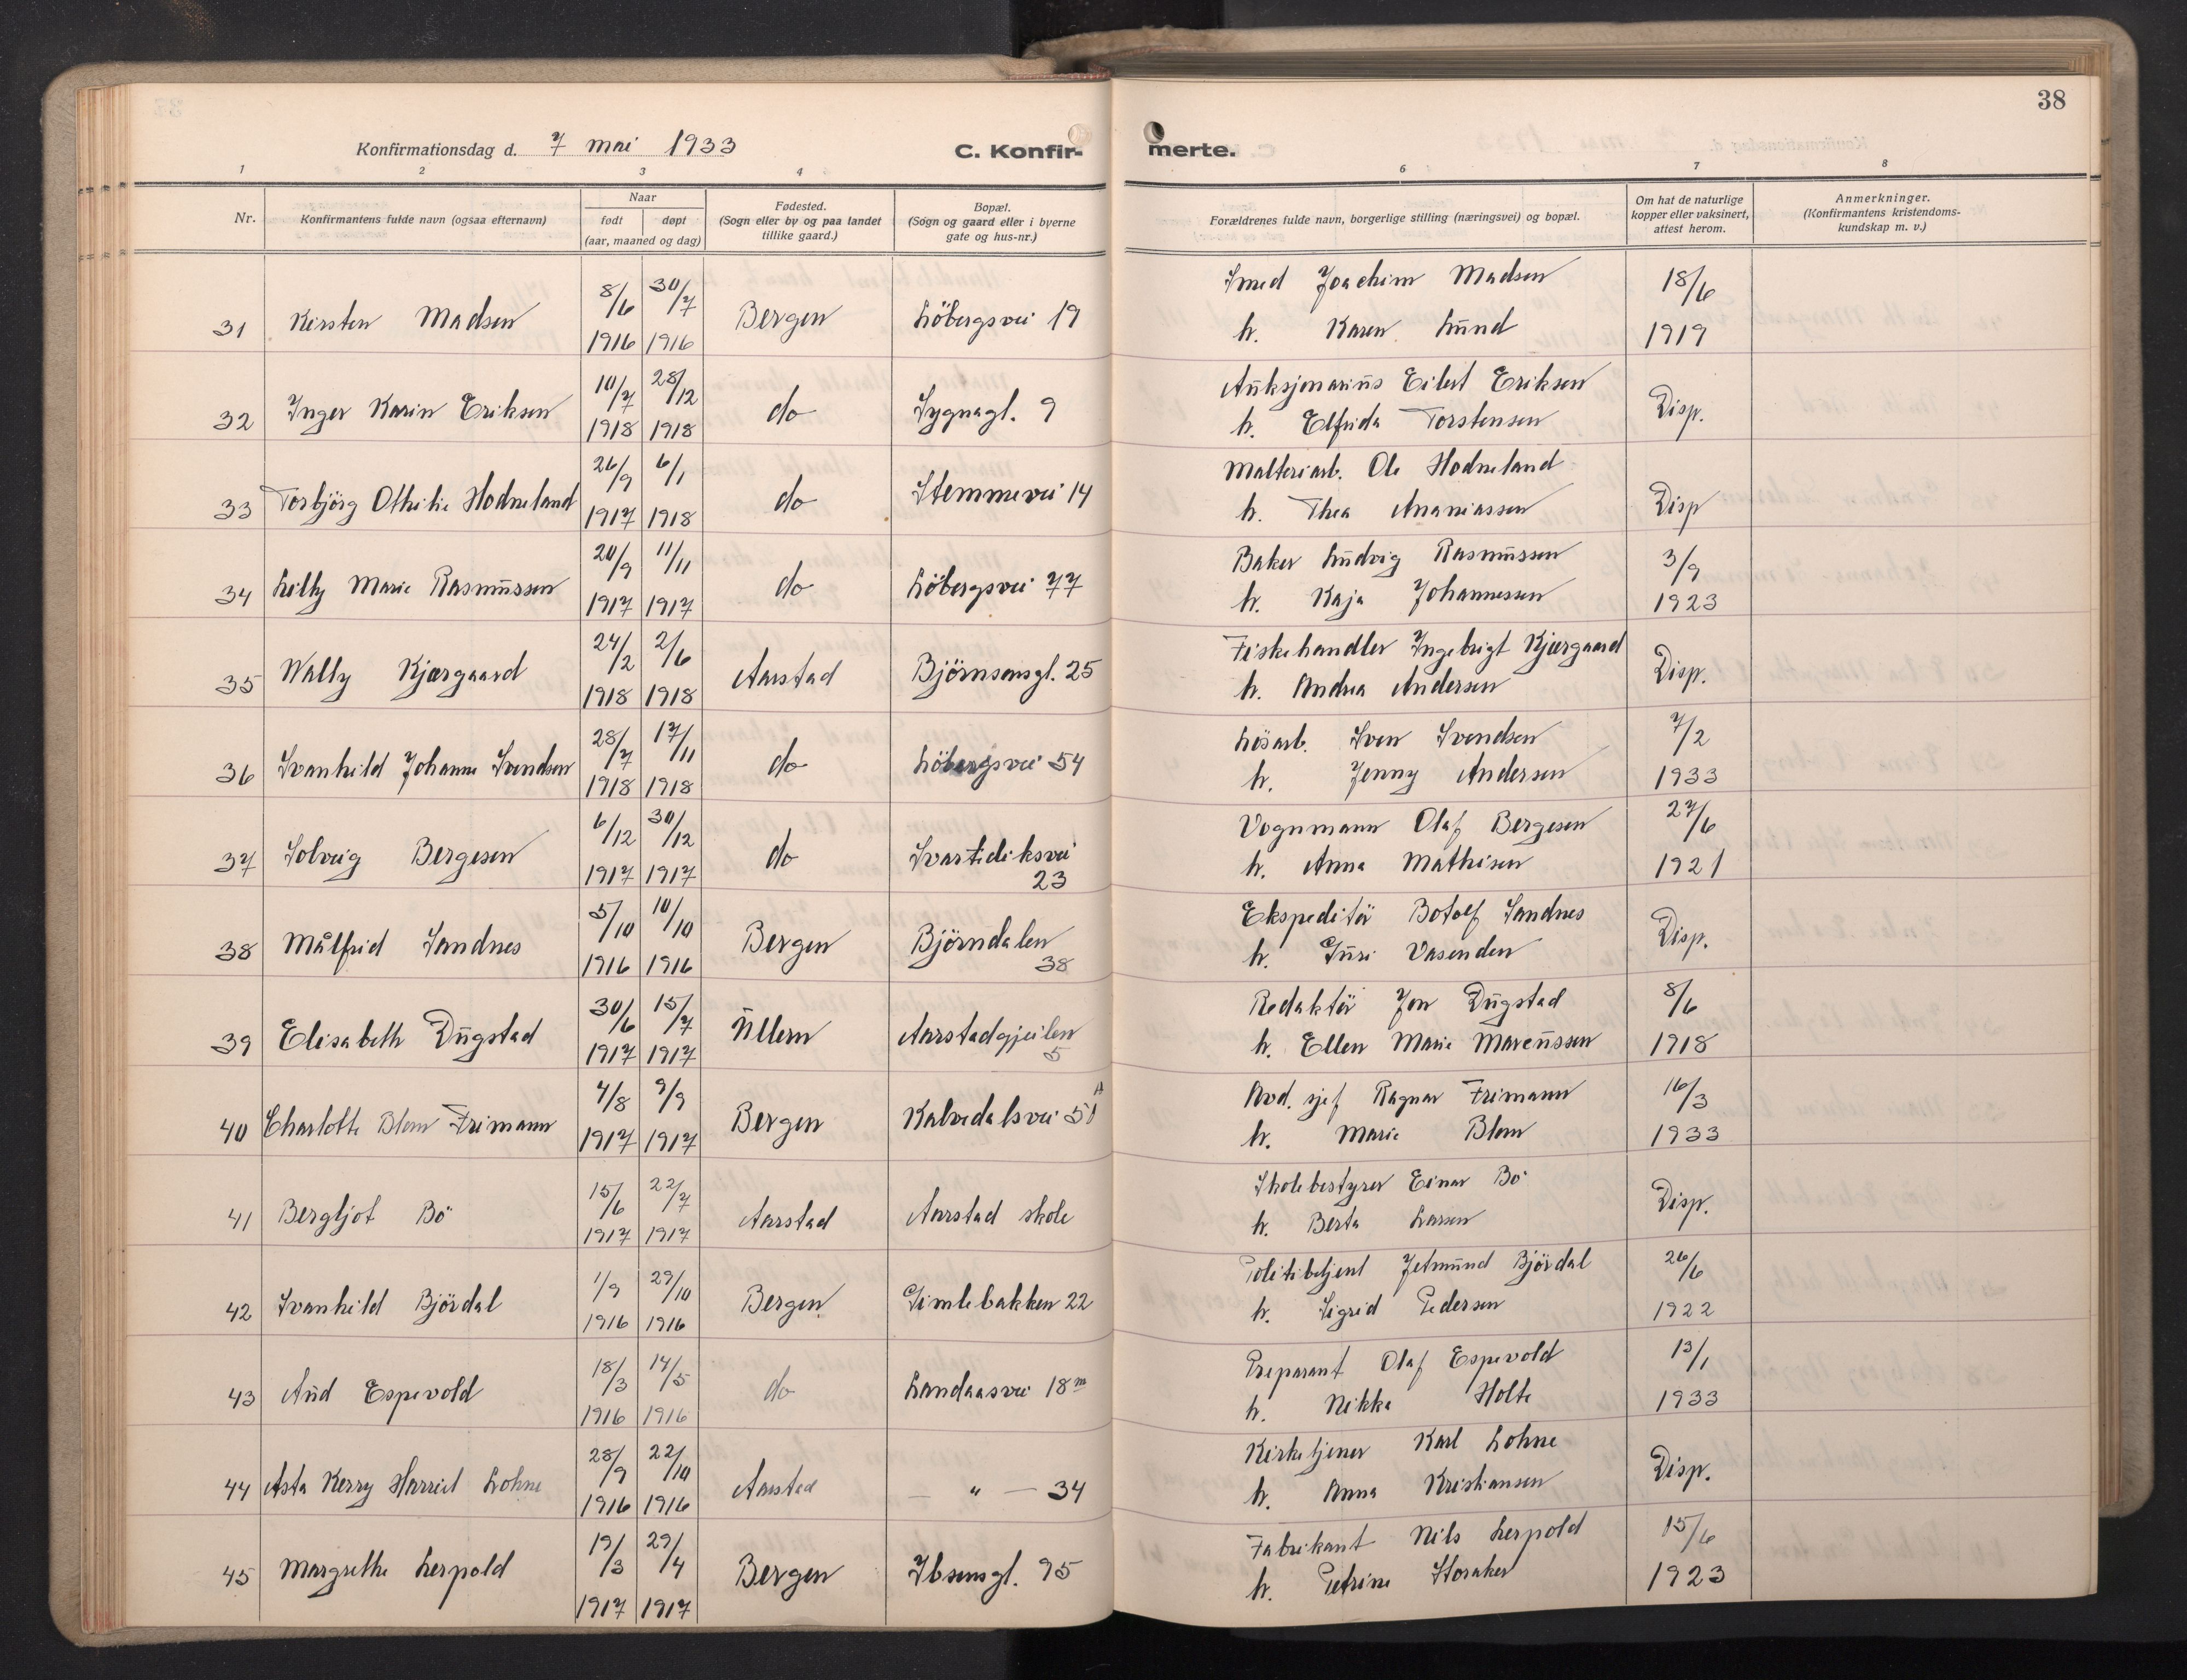 38
Konfirmationsdag d. 7 mai 1933
C. Konfir-
merte.
1 2 3 4 6 7 8
Nr.
Konfirmantens fulde navn (ogsaa efternavn)
Naar
født døpt
(aar, maaned og dag)
Fødested.
(Sogn eller by og paa landet
tillike gaard.)
Bopæl.
(Sogn og gaard eller i byerne
gate og hus-nr.)
Forældrenes fulde navn, borgerlige stilling (næringsvei) og bopæl.
Om hat de naturlige
kopper eller vaksinert,
attest herom.
Anmerkninger.
(Konfirmantens kristendoms-
kundskap m. v.)
8/6 30/7 Smed Joachim Madsen 18/6
31 Kirsten Madsen Bergen Löbergsvei 19
1916 1916 h. Karen Lund 1919
10/7 28/12 Auksjonarius Eilert Eriksen
32 Inger Karin Eriksen do Sygnagl. 9 Disp.
1918 1918 h. Elfrida Torstensen
26/9 6/1 Malteriarb. Ole Hodneland
33 Torbjörg Othilie Hodneland do Stemmevei 14 Disp
1917 1918 h. Thea Ananiassen
20/9 11/11 Baker Ludvig Rasmussen 3/9
34 Lilly Marie Rasmussen do Löbergsvei 77
1917 1917 h. Kaja Johannessen 1923
24/2 2/6 Fiskehandler Ingebrigt Kjærgaard
35 Wally Kjærgaard Aarstad Björnsonsgl. 25 Disp.
1918 1918 h. Andrea Andersen
28/7 17/11 Lösarb. Sven Svendsen 7/2
36 Svanhild Johanne Svendsen do Löbergsvei 54
1918 1918 h. Jenny Andersen 1933
6/12 30/12 Vognmann Olaf Bergesen 27/6
37 Solveig Bergesen do Svartediksvei
23
1917 1917 h. Anna Mathisen 1921
5/10 10/10 Ekspeditör Botolf Sandnes
38 Målfrid Sandnes Bergen Björndalen
38 Disp.
1916 1916 h. Guri Vasenden
30/6 15/7 Redaktör Jon Dugstad 8/6
39 Elisabeth Dugstad Ullern Aarstadgjeilen
5
1917 1917 h. Ellen Marie Marcussen 1918
4/8 9/9 Avd. sjef Ragnar Frimann 16/3
40 Charlotte Blom Frimann Bergen Kalvedalsvei 51 A
1917 1917 h. Marie Blom 1933
15/6 22/7 Skolebestyrer Einar Bö
41 Bergljot Bö Aarstad Aarstad skole Disp.
1917 1917 h. Berta Larsen
1/9 29/10 Politibetjent Jetmund Björdal 26/6
42 Svanhild Björdal Bergen Gimlebakken 22
1916 1916 h. Sigrid Pedersen 1922
18/3 14/5 Preparant Olaf Espevold 13/1
43 Aud Espevold do Landaasvei 18 m
1916 1916 h. Nikka Holte 1933
28/9 22/10 Kirketjener Karl Lohne
44 Asta Kerry Harriet Lohne Aarstad — " — 34 Disp.
1916 1916 h. Anna Kristiansen
19/3 29/4 Fabrikant Nils Lerpold 15/6
45 Margrethe Lerpold Bergen Ibsensgl. 95
1917 1917 h. Petrine Storaker 1923